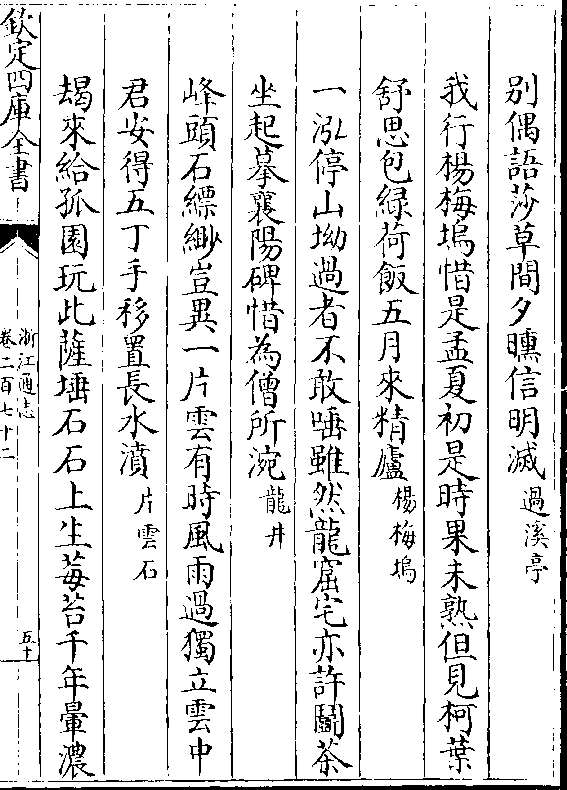 别偶語莎草間夕曛信明滅過溪亭
我行楊梅塢惜是孟夏初是時果未熟但見柯葉
舒思包綠荷飯五月來精廬楊梅塢
一泓停山坳過者不敢唾雖然龍窟宅亦許鬬茶
坐起摹襄陽碑惜為僧所涴龍井
峰頭石縹緲豈異一片雲有時風雨過獨立雲中
君安得五丁手移置長水濆片雲石
朅來給孤園玩此薩埵石石上生莓苔千年暈濃
欽定四庫全書
浙江通志
卷二百七十二
五十